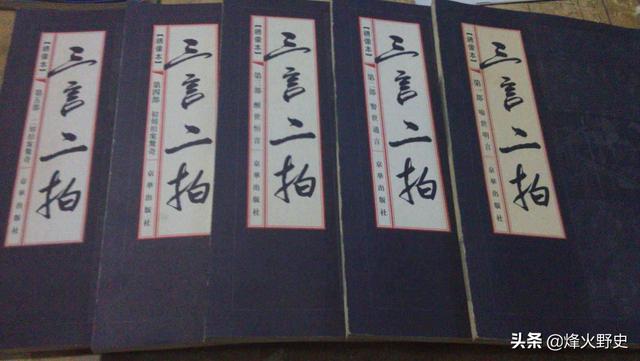 三言二拍
【繡像本】 第一部 喻世明言 京華出版社
三言二拍
【繡像本】 第二部 警世通言 京華出版社
三言二拍
【繡像本】 第三部 醒世恒言 京華出版社
三言二拍
【繡像本】 第四部 初刻拍案驚奇 京華出版社
三言二拍
【繡像本】 第五部 二刻拍案驚奇 京華出版社
头条 @烽火野史